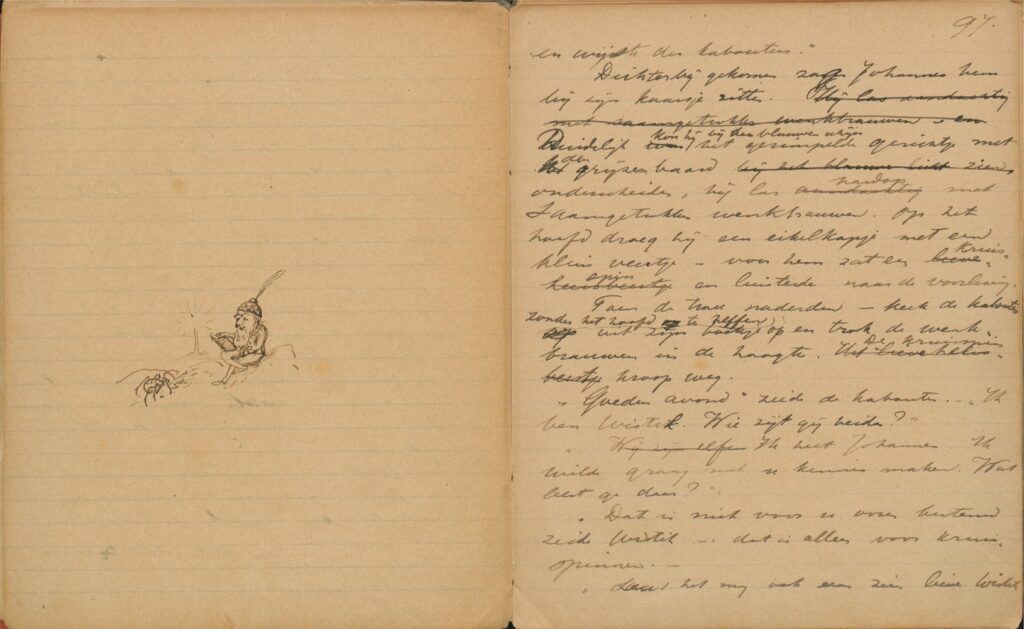 97.
en wijste der kabouters."
Dichterbij gekomen zag Johannes hem
bij zijn kaarsje zitten. Hij las aandachtig
met saamgetrokken wenkbrauwen en
Duidelijk kon hij bij den blauwen schijn het gerimpelde gezichtje met
den grijzen baard bij het blauwe licht zien
onderscheiden, hij las aandachtig hardop met
saamgetrokken wenkbrauwen. Op het
hoofd droeg hij een eikelkapje met een
klein veertje – voor hem zat een kruis-
spin en luisterde naar de voorlezing.
Toen de twee naderden – keek de kabouter
zonder het hoofd op te heffen, uit zijn boekje op en trok de wenk-
brauwen in de hoogte. De kruisspin
beestje kroop weg.
"Goeden avond" zeide de kabouter. – "Ik
ben Wistik. Wie zijt gij beiden?"
" Wij zijn elfen Ik heet Johannes. Ik
wilde graag met u kennis maken. Wat
leest ge daar?"
" Dat is niet voor uw ooren bestemd
zeide Wistik – dat is alleen voor kruis-
spinnen. –
" Laat het mij ook eens zien lieve Wistik